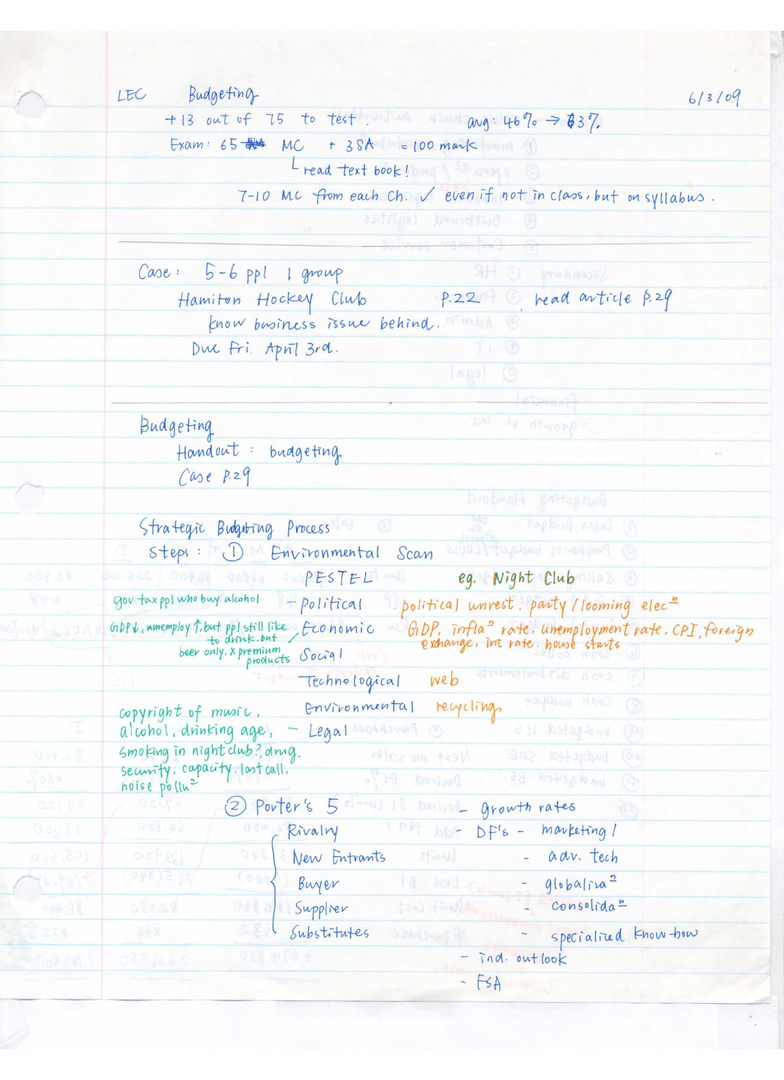 LEC Budgeting 6/3/09
+13 out of 75 to test. avg: 46% → 63%
Exam: 65 MC + 3SA = 100 mark
read text book!
7-10 MC from each Ch. ✓ even if not in class, but on syllabus.
Case: 5-6 ppl 1 group
Hamilton Hockey Club P.22, read article P.29
know business issue behind.
Due Fri. April 3rd.
Budgeting
Handout: budgeting
Case P.29
Strategic Budgeting Process
Steps: ① Environmental Scan
PESTEL eg. Night Club
gov tax ppl who buy alcohol – Political political unrest: party/looming elecⁿ
GDP↓, unemploy↑, but ppl still like Economic GDP, inflaⁿ rate, unemployment rate, CPI, foreign
to drink, but exchange, int rate, house starts
beer only, X premium Social
products
Technological web
Environmental recycling
copyright of music,
alcohol, drinking age, – Legal
smoking in nightclub?, drug,
security, capacity, last call,
noise polluⁿ
② Porter's 5 – growth rates
Rivalry – DF's – marketing!
New Entrants – adv. tech
Buyer – globalizaⁿ
Supplier – consolidaⁿ
Substitutes – specialized know-how
– ind. outlook
– FSA